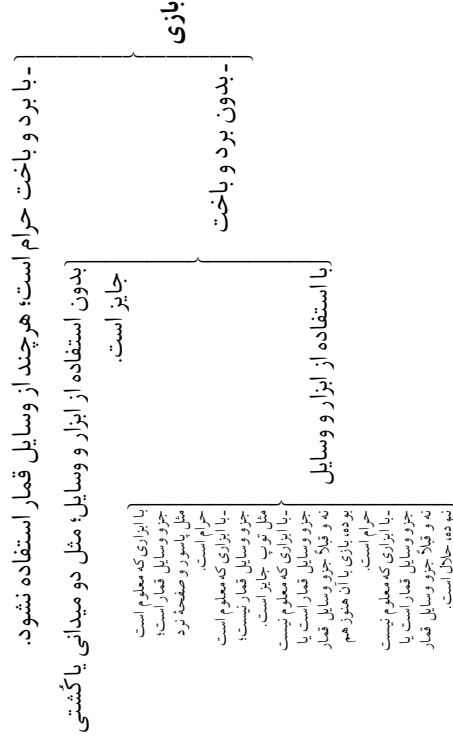 بازی
ـ با برد و باخت حرام است؛ هرچند از وسایل قمار استفاده نشود.
ـ بدون برد و باخت
بدون استفاده از ابزار و وسایل؛ مثل دو میدانی یا کُشتی
جایز است.
با استفاده از ابزار و وسایل
با ابزاری که معلوم است
جزو وسایل قمار است؛
مثل پاسور و صفحهٔ نرد
حرام است.
ـ با ابزاری که معلوم است
جزو وسایل قمار نیست؛
مثل توپ جایز است.
ـ با ابزاری که معلوم نیست
جزو وسایل قمار است یا
نه و قبلاً جزو وسایل قمار
بوده، بازی با آن هنوز هم
حرام است.
ـ با ابزاری که معلوم نیست
جزو وسایل قمار است یا
نه و قبلاً جزو وسایل قمار
نبوده، حلال است.